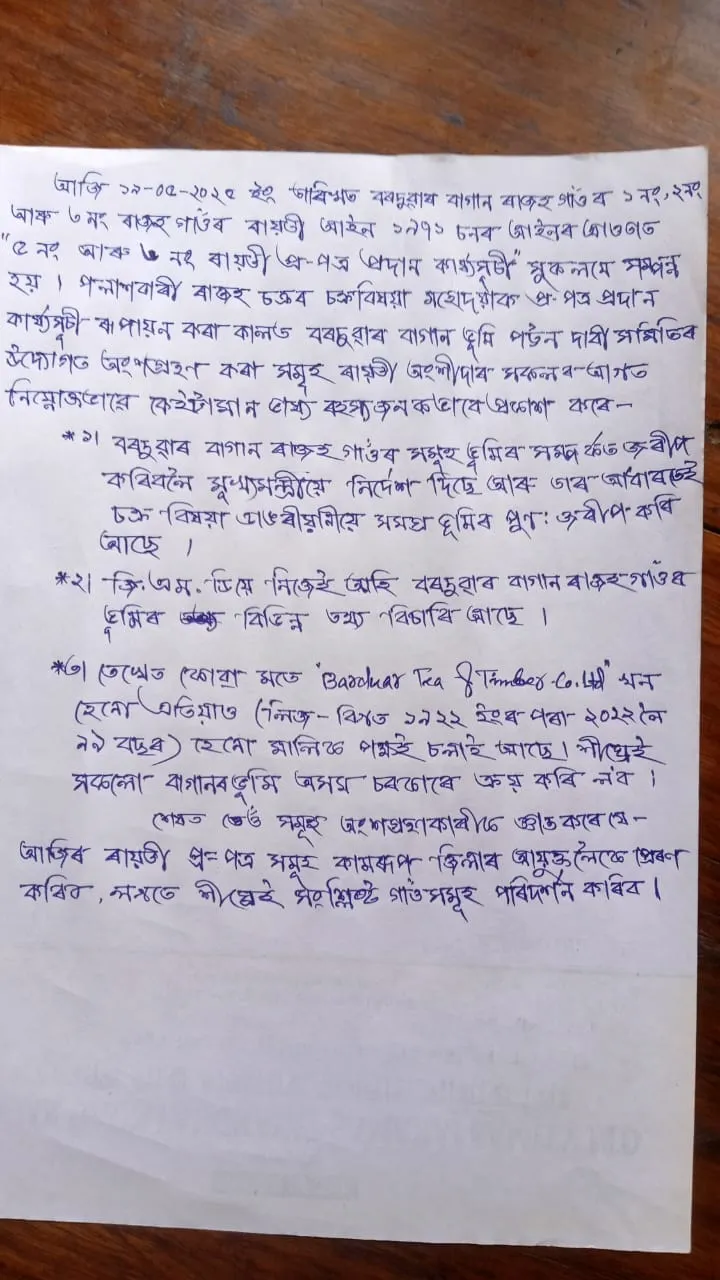 আজি ১৯-০৫-২০২৫ ইং তাৰিখত বৰদুৱাৰ বাগান ৰাজহ গাঁওৰ ১ নং, ২নং
আৰু ৩ নং ৰাজহ গাঁওৰ ৰায়তী আইন ১৯৭১ চনৰ আইনৰ আওতাত
"৫ নং আৰু ৬ নং ৰায়তী প্ৰ-পত্ৰ প্ৰদান কাৰ্য্যসূচী" সুকলমে সম্পন্ন
হয়। পলাশবাৰী ৰাজহ চক্ৰৰ চক্ৰবিষয়া মহোদয়াক প্ৰ-পত্ৰ প্ৰদান
কাৰ্য্যসূচী ৰূপায়ন কৰা কালত বৰদুৱাৰ বাগান ভূমি পট্টন দাবী সমিতিৰ
উদ্যোগত অংশগ্ৰহণ কৰা সমূহ ৰায়তী অংশীদাৰ সকলৰ আগত
নিম্নোক্তভাৱে কেইটামান তথ্য ৰহস্যজনকভাৱে প্ৰকাশ কৰে-
*১। বৰদুৱাৰ বাগান ৰাজহ গাওঁৰ সমূহ ভূমিৰ সম্পৰ্কত জৰীপ
কৰিবলৈ মুখ্যমন্ত্ৰীয়ে নিৰ্দেশ দিছে আৰু তাৰ আধাৰতেই
চক্ৰ বিষয়া সমগ্ৰ ভূমিৰ পুণঃ জৰীপ কৰি
আছে।
*২। জি.এম. ডিয়ে নিজেই আহি বৰদুৱাৰ বাগান ৰাজহ গাওঁৰ
ভূমিৰ বিভিন্ন তথ্য বিচাৰি আছে।
*৩। তেখেত কোৱা মতে "Barduar Tea & Timber Co. Ltd" খন
হেনো এতিয়াও (লিজ- বিগত ১৯২২ ইংৰ পৰা ২০২২ লৈ
৯৯ বছৰ) হেনো মালিকে পক্ষই চলাই আছে। শীঘ্ৰেই
সকলো বাগানৰ ভূমি অসম চৰকাৰে ক্ৰয় কৰি ল'ব।
শেষত তেওঁ সমূহ অংশগ্ৰহণকাৰীকে জ্ঞাত কৰে যে-
আজিৰ ৰায়তী প্ৰ-পত্ৰ সমূহ কামৰূপ জিলাৰ আয়ুক্তলৈকে প্ৰেৰণ
কৰিব, লগতে শীঘ্ৰেই সংশ্লিষ্ট গাওঁ সমূহ পৰিদৰ্শন কৰিব।